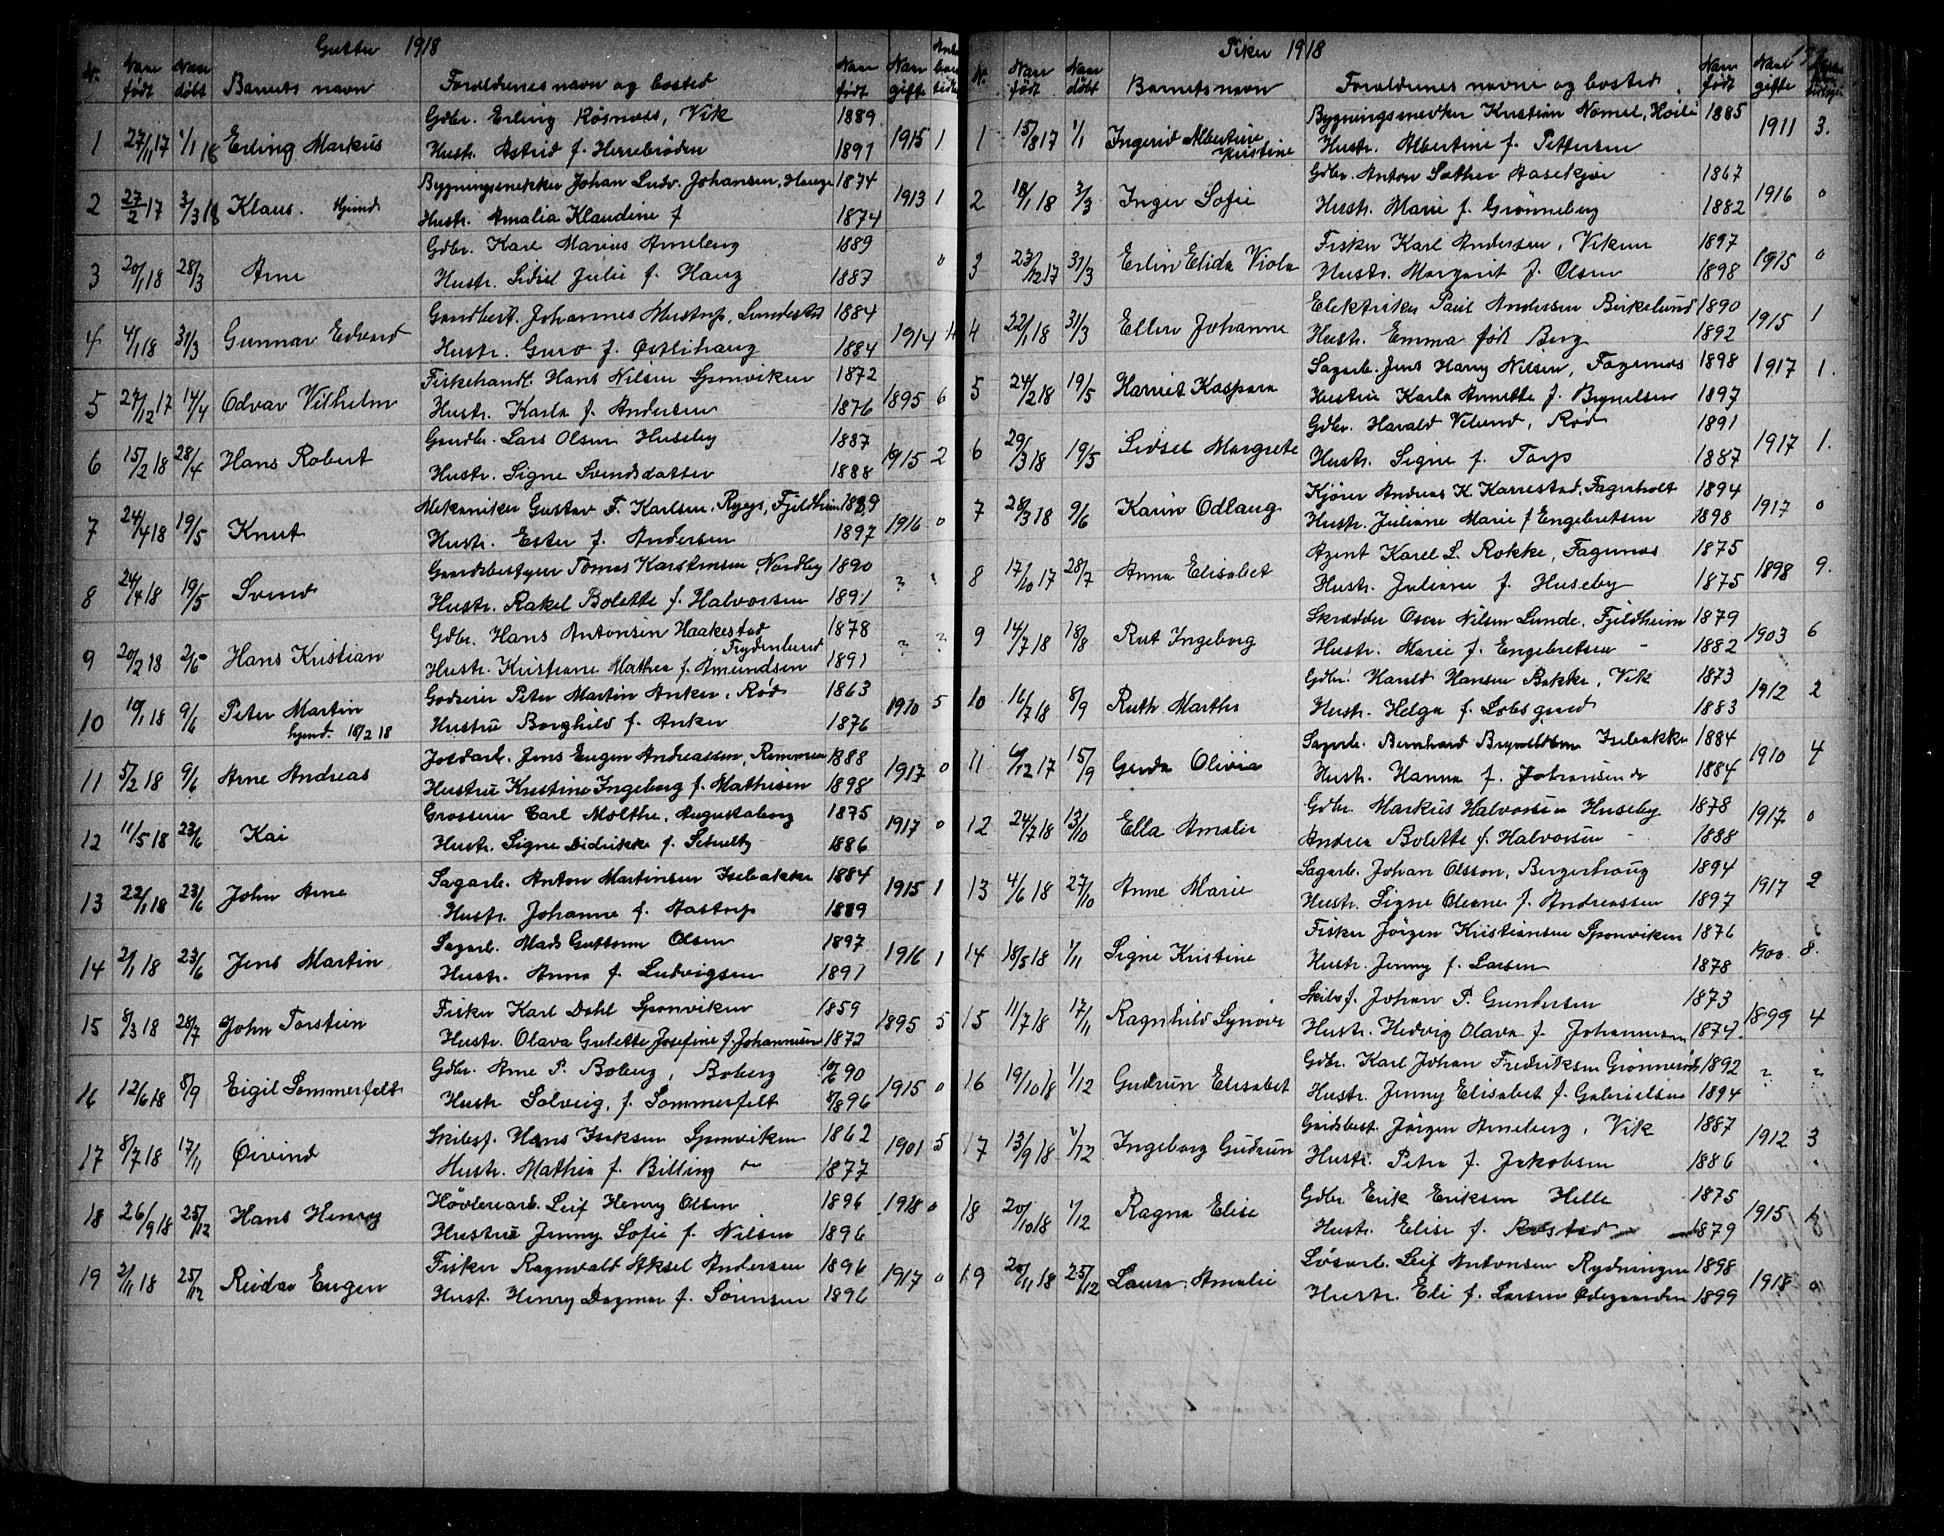 Gutter 1918
Nr. Naar født Naar døbt Barnets navn Foreldrenes navn og bosted Naar født Naar gifte
Gdbr. Erling Røsnæs, Vik 1889
1 27/11 17 1/1 18 Erling Markus 1915 1
Hustr. Astrid f. Herrebrøden 1891
Bygningssnekker Johan Ludv. Johansen, Hauge 1874
2 27/2 17 3/3 18 Klaus. Hjemd. 1913 1
Hustr. Amalia Klaudine f 1874
Gdbr. Karl Marius Arneberg 1889
3 20/1 18 28/3 Arne 0
Hustr. Sidsel Julie f. Haug 1887
Gaardbest. Johannes Mustrup, Sundestad 1884
4 4/1 18 31/3 Gunnar Edvard 1914 4
Hustr. Guro f. Østlihaug 1884
Fiskehandl. Hans Nilsen Sponviken 1872
5 27/12 17 14/4 Odvar Vilhelm 1895 6
Hustr. Karla f. Andersen 1876
Gaardbr. Lars Olsen Huseby 1887
6 15/2 18 28/4 Hans Robert 1915 2
Hustr. Signe Svendsdatter 1888
Mekaniker Gustav F. Karlsen, Fjeldheim 1889
7 24/4 18 19/5 Knut 1916 0
Hustr. Ester f. Andersen 1897
Gaardsbestyrer Tomas Karstensen, Nordby 1890
8 24/4 18 19/5 Svend ? ?
Hustr. Rakel Bolette f. Halvorsen 1891
Gdbr. Hans Antonsen Haakestad 1878
Frydenlund
9 20/2 18 2/6 Hans Kristian ? ?
Hustr. Kristiane Mathea f. Amundsen 1891
Godseier Peter Martin Anker, Rød 1863
10 19/1 18 9/6 Peter Martin 1910 5
hjemd. 18/2 18
Hustru Borghild f. Anker 1876
Jordarb. Jens Eugen Andreassen, Remmen 1888
11 5/2 18 9/6 Arne Andreas 1917 0
Hustru Kristine Ingeborg f. Mathisen 1898
Grosserer Carl Molthe, Augustaborg 1875
12 11/5 18 23/6 Kai 1917 0
Hustr. Signe Didrikke f. Schultz 1886
Sagarb. Anton Martinsen Isebakke 1884
13 22/1 18 23/6 John Arne 1915 1
Hustr. Johanne f. Aastorp 1889
Sagarb. Mads Guttorm Olsen 1897
14 2/1 18 23/6 Jens Martin 1916 1
Hustr. Anna f. Ludvigsen 1891
Fisker Karl Dahl Sponviken 1859
15 8/3 18 28/7 John Torstein 1895 5
Hustr. Olava Gulette Josefine f. Johannesen 1872
Gdbr. Arne P. Boberg, Boberg 19/6 90
16 12/6 18 8/9 Eigil Sommerfelt 1915 0
Hustr Solveig, f. Sommerfelt 8/8 96
Skibsf. Hans Isaksen Sponviken 1862
17 8/7 18 17/11 Øivind 1901 5
Hustr. Mathea f. Billing 1877
Høvleriarb. Leif Henry Olsen 1896
18 26/9 18 25/12 Hans Henry 1918 0
Hustru Jenny Sofie f. Nilsen 1896
Fisker Ragnvald Aksel Andersen 1896
19 2/11 18 25/12 Reidar Eugen 1917 0
Hust. Henry Dagmar f. Sørensen 1896
Piker 1918
Nr. Naar født Naar døbt Barnets navn Foreldrenes navne og bosted Naar født Naar gifte
Bygningssnekker Kristian Nomel, Høilie 1885
1 15/8 17 1/1 Ingerid Albertine Kristine 1911 3.
Hustr. Albertine f. Pettersen
Gdbr. Anton Sæther Aasekjær 1867
2 18/1 18 3/3 Inger Sofie 1916 0
Hustr. Marie f. Grønneberg 1882
Fisker Karl Andersen, Viken 1897
3 23/12 17 31/3 Erlin Elida Viola 1915 0
Hustr. Margarit f. Olsen 1898
Elektriker Paul Andersen Birkelund 1890
4 22/1 18 31/3 Ellen Johanne 1915 1
Hustr. Emma født Berg 1892
Sagarb. Jens Harry Nilsen, Fagernæs 1898
5 24/2 18 19/5 Harriet Kaspara 1917 1.
Hustru Karla Annette f. Brynelsen 1897
Gdbr. Harald Velund, Rød 1891
6 29/3 18 19/5 Sidsel Margrete 1917 1.
Hustr. Signe f. Torp 1887
Kjører Andreas K. Karrestad, Fagerholt 1894
7 28/3 18 9/6 Karin Odlaug 1917 0
Hustr. Juliane Marie f Engebretsen 1898
Agent Karel L. Rokke, Fagernæs 1875
8 17/10 17 28/7 Anna Elisabet 1898 9.
Hustr. Juliane f. Huseby 1875
Skrædder Oscar Nilsen Lunde, Fjeldheim 1879
9 14/7 18 18/8 Rut Ingeborg 1903 6
Hustr. Marie f. Engebretsen - 1882
Gdbr. Harald Hansen Bakke, Vik 1873
10 16/7 18 8/9 Ruth Marthe 1912 2
Hustr. Helga f. Lobsgaard 1883
Sagarb. Bernhard Brynildsen Isebakke 1884
11 6/12 17 15/9 Gerda Olivia 1910 4
Hustr. Hanna f. Johansen do 1884
Gdbr. Markus Halvorsen Huseby 1878
12 24/7 18 13/10 Ella Amalie 1917 0
Andrea Bolette f. Halvorsen - 1888
Sagarb. Johan Olsson, Bergerhaug 1894
13 4/6 18 27/10 Anne Marie 1917 2
Hustr. Signe Oleane f. Andreassen 1897
Fisker Jørgen Kristiansen Sponviken 1876
14 18/5 18 1/11 Signe Kristine 1900. 8.
Hustr. Jenny f. Larsen 1878
Skibsf. Johan P. Gundersen 1873
15 11/7 18 17/11 Ragnhild Synøve 1899 4
Hustr. Hedvig Olava f. Johannesen 1879.
Gdbr. Karl Johan Fredriksen Grønnerød 1892
16 19/10 18 1/12 Gudrun Elisabet ? ?
Hustr. Jenny Elisabet f. Gabrielsen 1894
Gaardsbest. Jørgen Arneberg, Vik 1887
17 13/9 18 1/12 Ingeborg Gudrun 1912 3
Hustr. Petra f. Jakobsen 1886
Gdbr. Erik Eriksen Helle 1875
18 20/10 18 1/12 Ragna Elise 1915 1
Hustr. Elise f. Rolstad 1879
Løsarb. Leif Antonsen Rydningen 1898
19 20/11 18 25/12 Laura Amalie 1918 0
Hustr. Eli f. Larsen Ødegaarden 1899